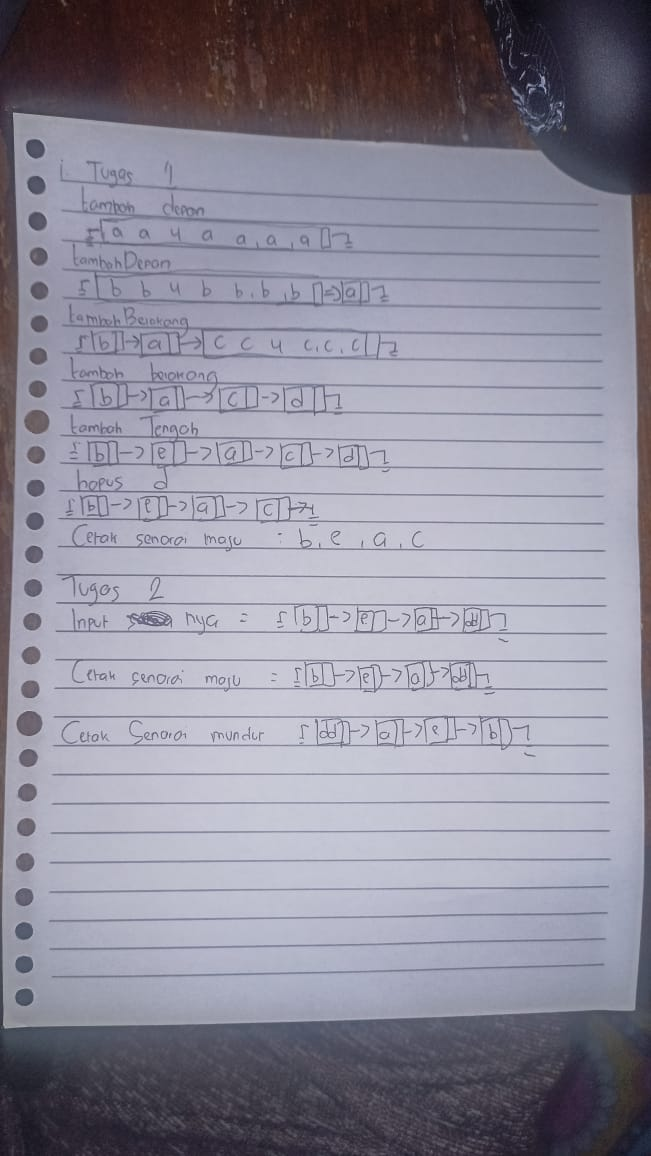 1. Tugas 1
tambah depan
[a a 4 a a, a, a []
tambahDepan
[b b 4 b b, b, b []->[a]
tambahBelakang
[b]->[a]->[c c 4 c, c, c]
tambah belakang
[b]->[a]->[c]->[d]
tambah Tengah
[b]->[e]->[a]->[c]->[d]
hapus d
[b]->[e]->[a]->[c]->
Cetak senarai maju : b, e, a, c
Tugas 2
Input nya = [b]->[e]->[a]->[dd]
Cetak senarai maju = [b]->[e]->[a]->[dd]
Cetak Senarai mundur [dd]->[a]->[e]->[b]